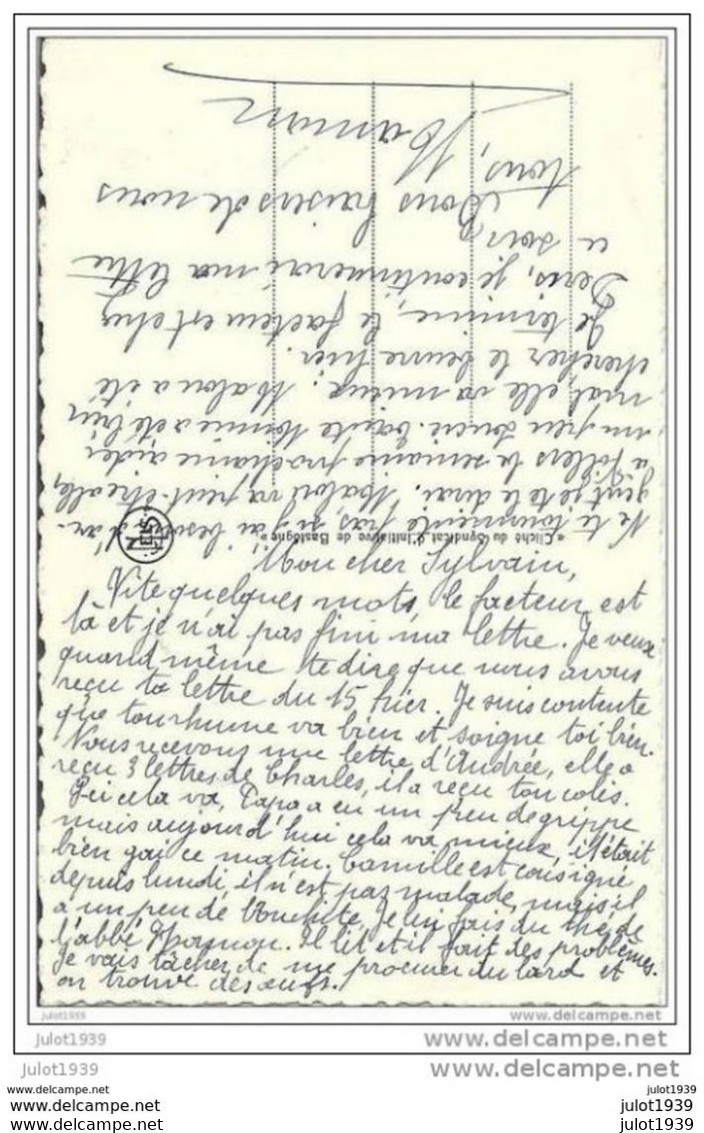 Mon cher Sylvain,
Vite quelques mots, le facteur est
là et je n'ai pas fini ma lettre. Je veux
quand même te dire que nous avons
reçu ta lettre du 15 hier. Je suis contente
que ton rhume va bien et soigne toi bien.
Nous recevons une lettre d'Andrée, elle a
reçu 3 lettres de Charles, il a reçu ton colis.
Ici cela va, Papa a eu un peu de grippe
mais aujourd'hui cela va mieux, il était
bien gai ce matin. Camille est consigné
depuis lundi, il n'est pas malade, mais il
a un peu de bronchite, Je lui fais du thé de
l'abbé. Il lit et il fait des problèmes.
Je vais tâcher de me procurer du lard et
on trouve des œufs.
Ne te tourmente pas, si j'ai besoin d'ar-
gent je te le dirai. Malou va peut-être aller
à la semaine prochaine aider
un peu. Nonnie a été bien
mal, elle va mieux. Malou a été
chercher le beurre hier.
Je termine, le facteur est chez
je continuerai ma lettre
ce soir.
Bons baisers de nous
tous, Maman
« Cliché du Syndicat d'Initiative de Bastogne »
NELS
julot1939
www.delcampe.net
julot1939
www.delcampe.net
julot1939
www.delcampe.net
www.delcampe.net
julot1939
www.delcampe.net
julot1939
www.delcampe.net
julot1939